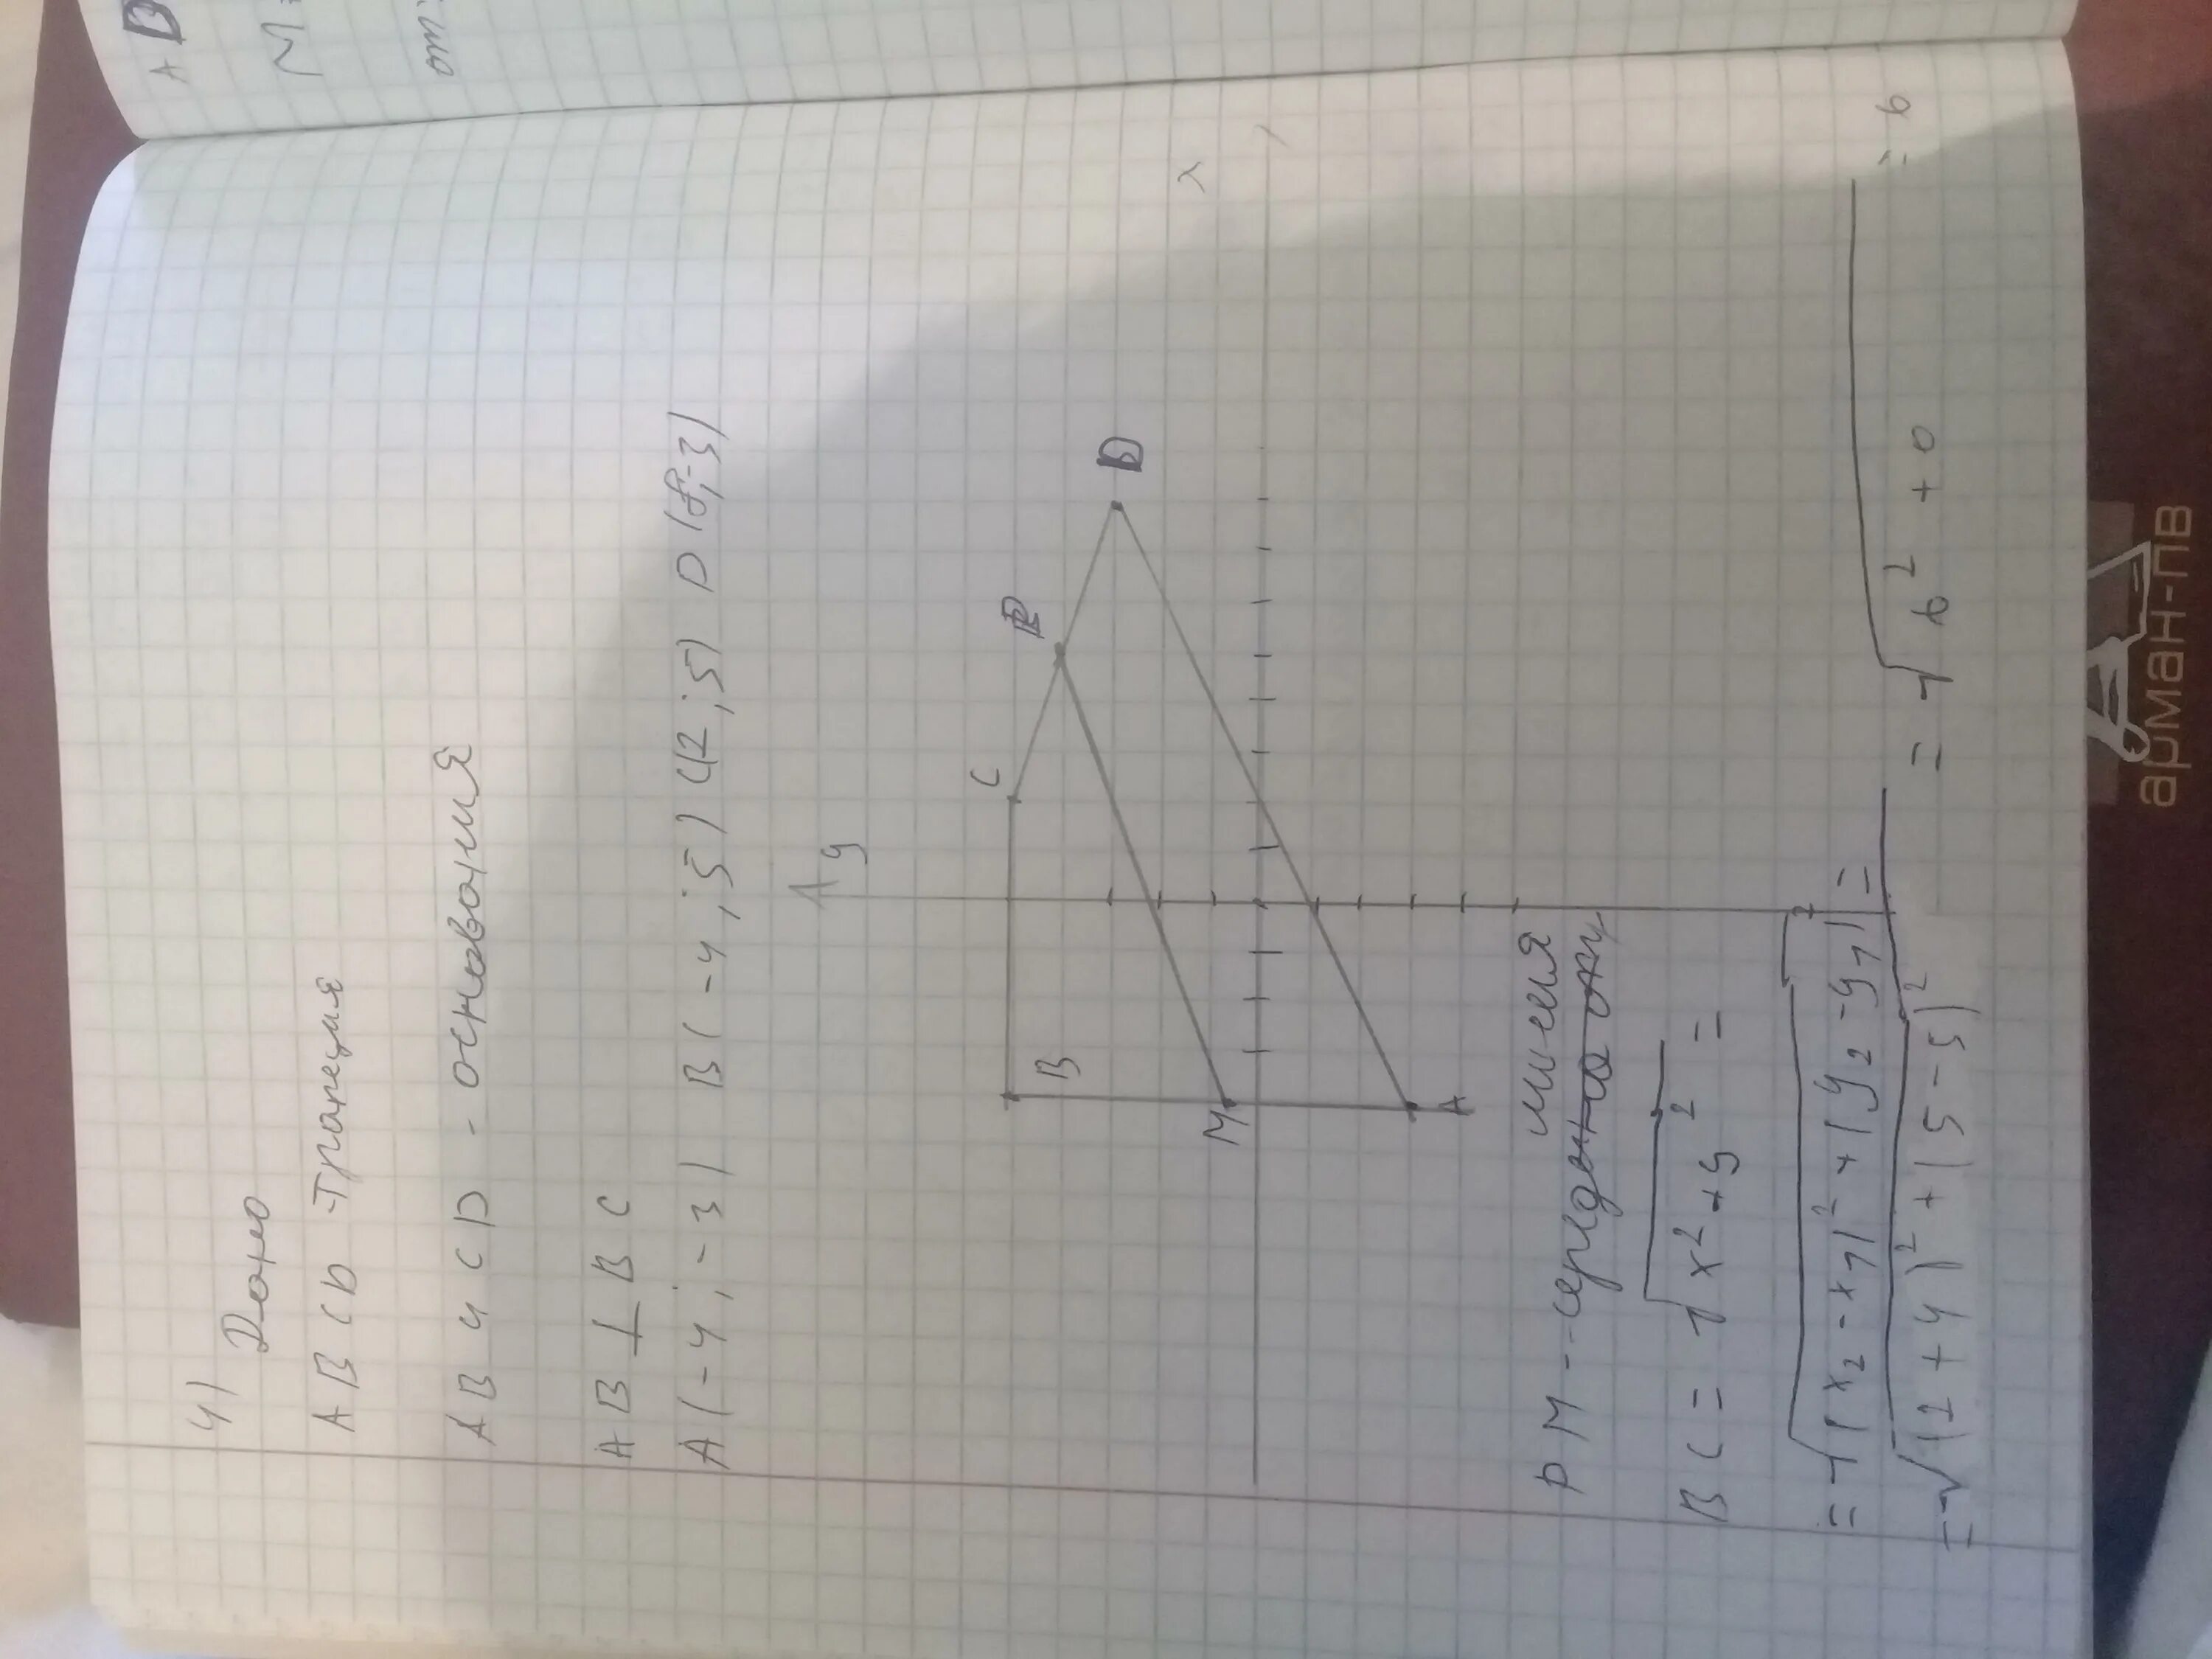 4)
Дано
ABCD - трапеция
AB и CD - основания
AB ⊥ BC
A(-4;-3) B(-4;5) C(2;5) D(8;-3)
y
x
B
C
P
D
M
A
PM - средняя линия
BC = √x²+y² =
= √(x₂-x₁)²+(y₂-y₁)² =
= √(2+4)²+(5-5)² = √6²+0 = 6
арман-пв